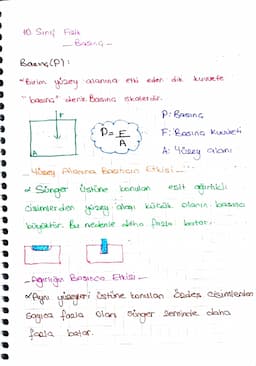 10. Sınıf Fizik
- Basınç -
Basınç (P):
Birim yüzey alanına etki eden dik kuvvete
"basınç" denir. Basınç skalerdir.
F
A
P = F
A
P: Basınç
F: Basınç Kuvveti
A: Yüzey alanı
- Yüzey Alanının Basınca Etkisi -
Sünger üstüne konulan eşit ağırlıklı
cisimlerden yüzey alanı küçük olanın basıncı
büyüktür. Bu nedenle daha fazla batar.
- Ağırlığın Basınca Etkisi -
Aynı yüzeyleri üstüne konulan özdeş cisimlerden
sayıca fazla olanı sünger zeminde daha
fazla batar.